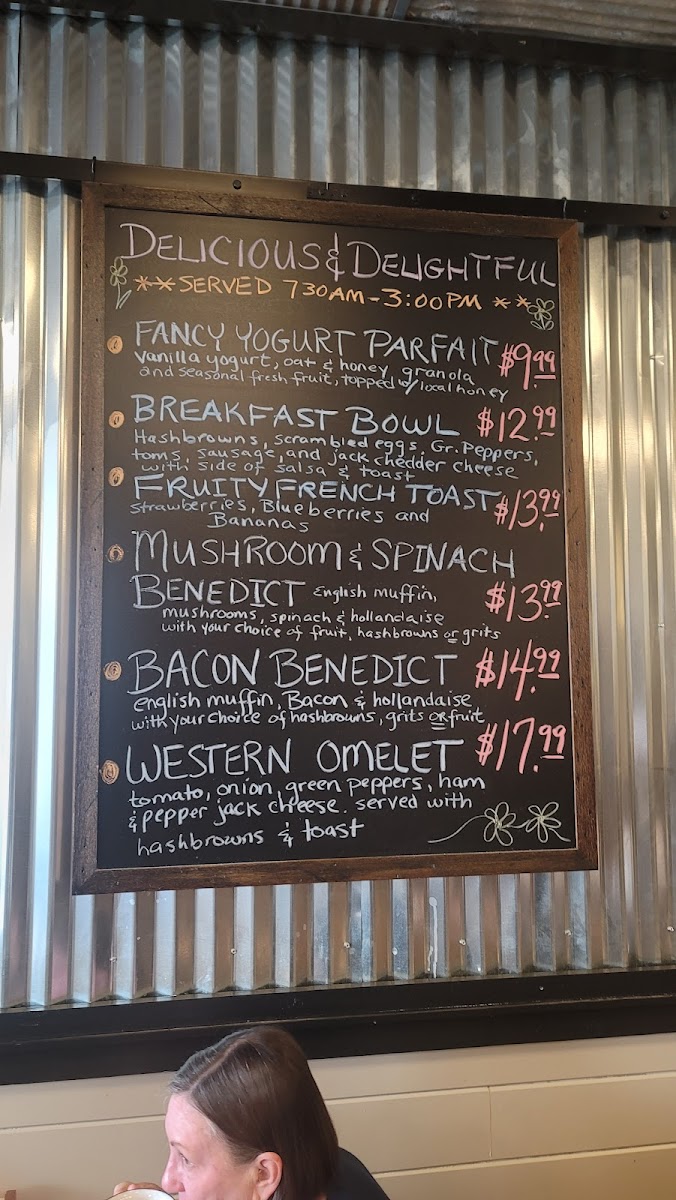 DELICIOUS & DELIGHTFUL
**SERVED 730AM-3:00PM **
FANCY YOGURT PARFAIT $9.99
vanilla yogurt, oat & honey, granola
and seasonal fresh fruit, topped w/ local honey
BREAKFAST BOWL $12.99
Hashbrowns, scrambled eggs, Gr. Peppers,
toms, sausage, and jack chedder cheese
with side of salsa & toast
FRUITY FRENCH TOAST $13.99
strawberries, Blueberries and
Bananas
MUSHROOM & SPINACH
BENEDICT English muffin, $13.99
mushrooms, spinach & hollandaise
with your choice of fruit, hashbrowns or grits
BACON BENEDICT $14.99
english muffin, Bacon & hollandaise
with your choice of hashbrowns, grits or fruit
WESTERN OMELET $17.99
tomato, onion, green peppers, ham
& pepper jack cheese. served with
hashbrowns & toast